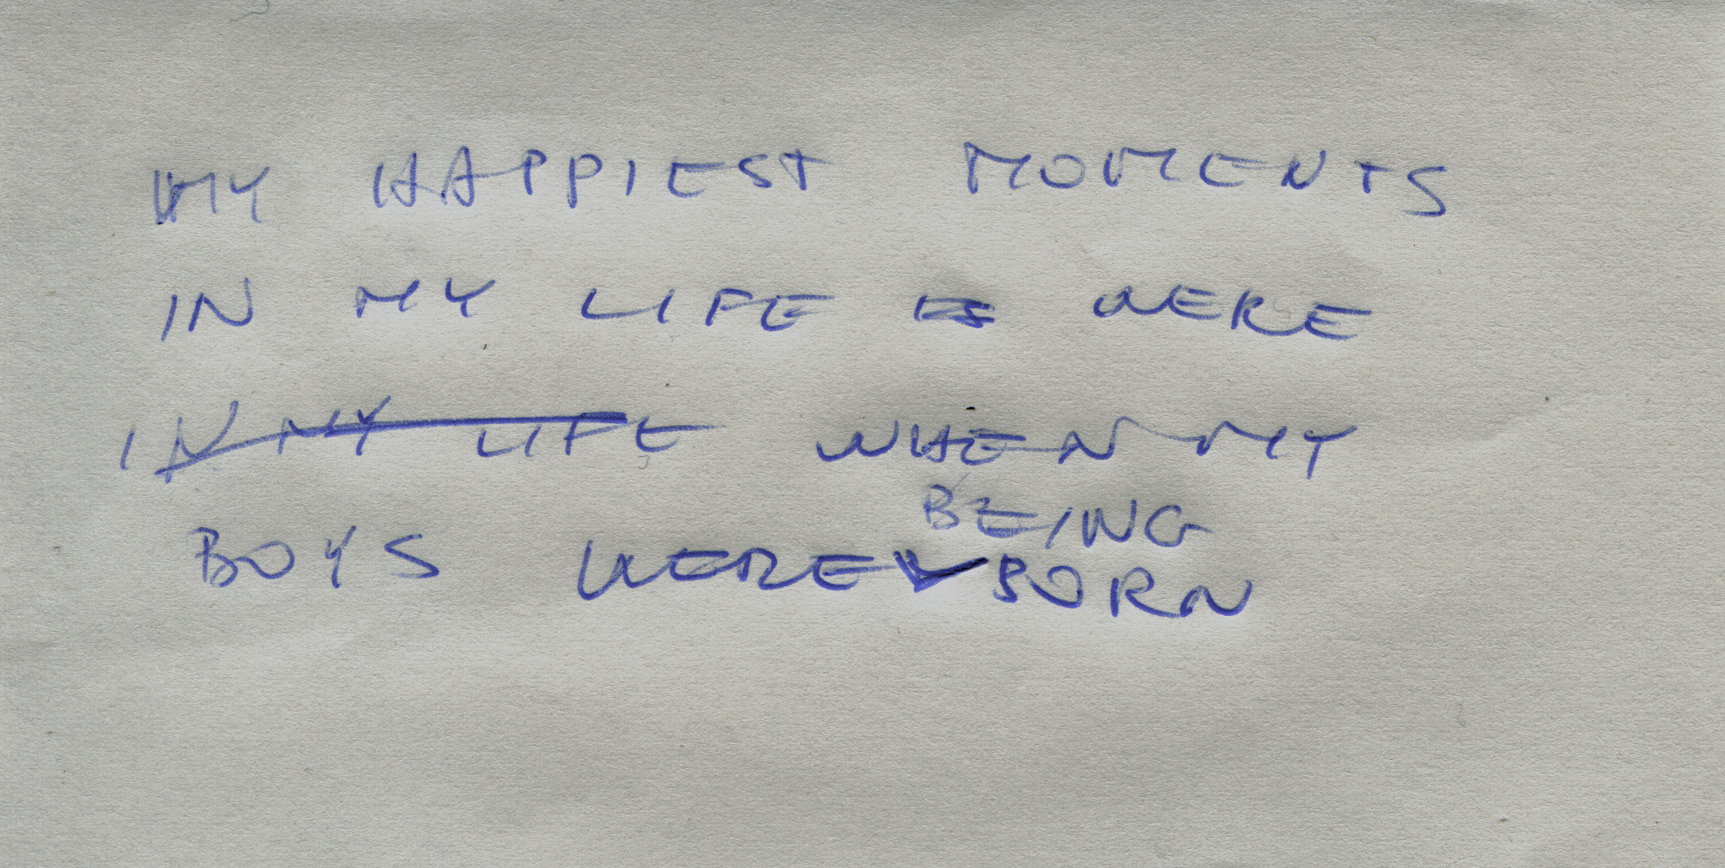 MY HAPPIEST MOMENTS
IN MY LIFE WERE
IN MY LIFE WHEN MY
BEING
BOYS WERE BORN